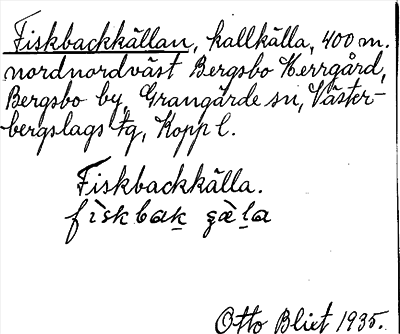 Fiskbackkällan, kallkälla, 400 m.
nordnordväst Bergsbo Herrgård,
Bergsbo by, Grangärde sn, Väster-
bergslags tg, Kopp l.
Fiskbackkälla.
fiskbak
Otto Bliet 1935.